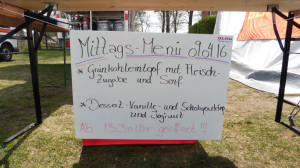 Mittags-Menü 09.04.16
* Grünkohleintopf mit Fleisch-
Zugabe und Senf
* Dessert-Vanille- und Schokopudding
und Joghurt
Ab 11:30 Uhr geöffnet !!!